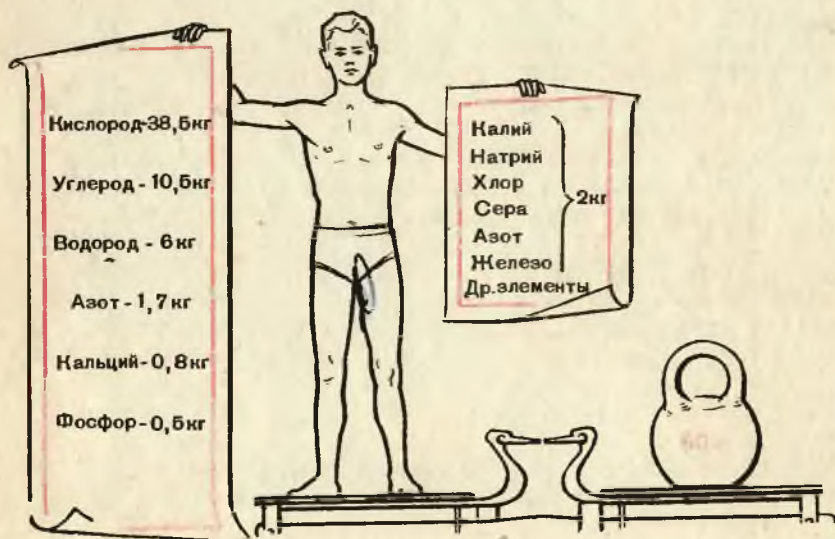 Кислород-38,5кг
Углерод - 10,5кг
Водород - 6кг
Азот - 1,7кг
Кальций-0,8кг
Фосфор-0,5кг
Калий
Натрий
Хлор
Сера
Азот
Железо
Др.элементы
2кг